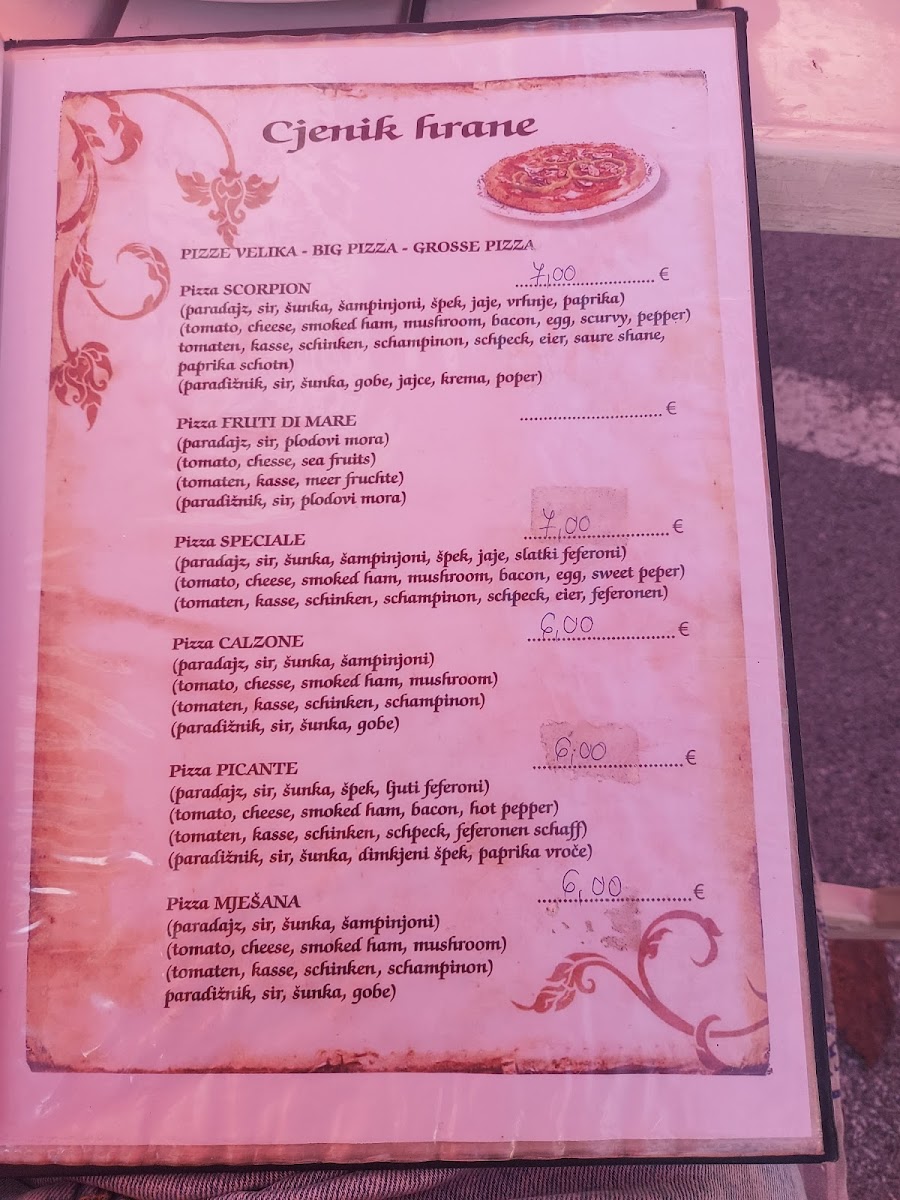 Cjenik hrane
PIZZE VELIKA - BIG PIZZA - GROSSE PIZZA
Pizza SCORPION 7,00 €
(paradajz, sir, šunka, šampinjoni, špek, jaje, vrhnje, paprika)
(tomato, cheese, smoked ham, mushroom, bacon, egg, scurvy, pepper)
tomaten, kasse, schinken, schampinon, schpeck, eier, saure shane,
paprika schotn)
(paradižnik, sir, šunka, gobe, jajce, krema, poper)
Pizza FRUTI DI MARE €
(paradajz, sir, plodovi mora)
(tomato, chesse, sea fruits)
(tomaten, kasse, meer fruchte)
(paradižnik, sir, plodovi mora)
Pizza SPECIALE 7,00 €
(paradajz, sir, šunka, šampinjoni, špek, jaje, slatki feferoni)
(tomato, cheese, smoked ham, mushroom, bacon, egg, sweet peper)
(tomaten, kasse, schinken, schampinon, schpeck, eier, feferonen)
Pizza CALZONE 6,00 €
(paradajz, sir, šunka, šampinjoni)
(tomato, chesse, smoked ham, mushroom)
(tomaten, kasse, schinken, schampinon)
(paradižnik, sir, šunka, gobe)
Pizza PICANTE 6,00 €
(paradajz, sir, šunka, špek, ljuti feferoni)
(tomato, cheese, smoked ham, bacon, hot pepper)
(tomaten, kasse, schinken, schpeck, feferonen schaff)
(paradižnik, sir, šunka, dimkjeni špek, paprika vroče)
Pizza MJEŠANA 6,00 €
(paradajz, sir, šunka, šampinjoni)
(tomato, cheese, smoked ham, mushroom)
(tomaten, kasse, schinken, schampinon)
paradižnik, sir, šunka, gobe)